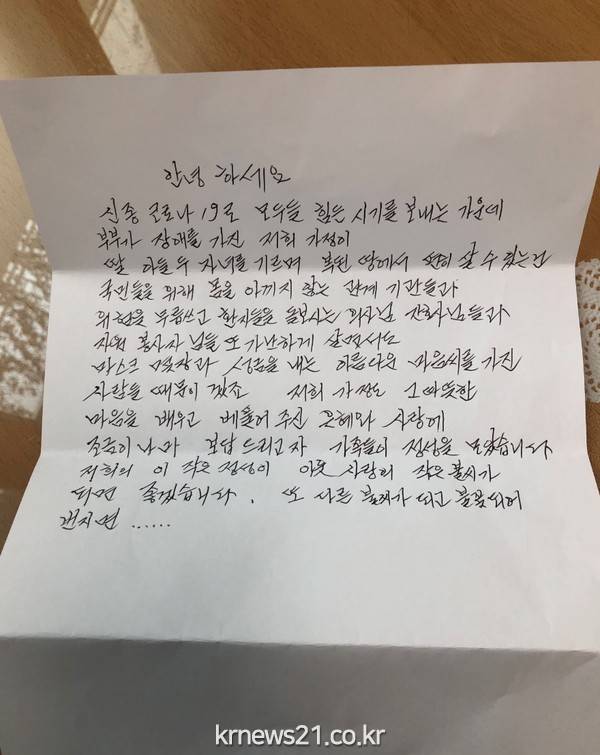 안녕 하세요
신종 코로나 19로 모두들 힘든 시기를 보내는 가운데
부부가 장애를 가진 저희 가정이
딸 아들 두 자녀를 기르며 복된 땅에서 편히 살 수 있는건
국민들을 위해 몸을 아끼지 않는 관계 기관들과
위험을 무릅쓰고 환자들을 돌보시는 의사님 간호사님들과
자원 봉사자 님들 또 가난하게 살면서도
마스크 몇장과 성금을 내는 아름다운 마음씨를 가진
사람들 때문이 겠죠 저희 가정도 그 따뜻한
마음을 배우고 베풀어 주신 은혜와 사랑에
조금이나마 보답 드리고자 가족들이 정성을 모았습니다
저희의 이 작은 정성이 이웃 사랑의 작은 불씨가
되면 좋겠습니다. 또 다른 불씨가 되고 불꽃되어
번지면 ......
krnews21.co.kr